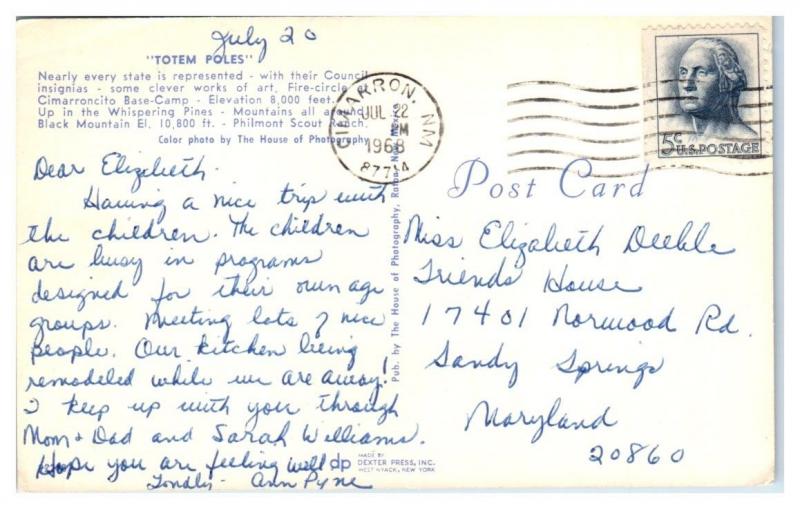 July 20
"TOTEM POLES"
Nearly every state is represented - with their Council
insignias - some clever works of art, Fire-circle at
Cimarroncito Base-Camp - Elevation 8,000 feet.
Up in the Whispering Pines - Mountains all around
Black Mountain El. 10,800 ft. - Philmont Scout Ranch.
Color photo by The House of Photography
CIMARRON, NM
JUL 22
M
1968
87714
5c U.S. POSTAGE
Post Card
Dear Elizabeth.
Having a nice trip with
the children. The children
are busy in programs
designed for their own age
groups. Meeting lots of nice
people. Our kitchen being
remodeled while we are away!
I keep up with you through
Mom + Dad and Sarah Williams.
Hope you are feeling well
Fondly - Ann Pyne
Pub. by The House of Photography, Raton, New Mexico
dp
MADE BY
DEXTER PRESS, INC.
WEST NYACK, NEW YORK
Miss Elizabeth Deeble
Friends House
17401 Norwood Rd.
Sandy Springs
Maryland
20860